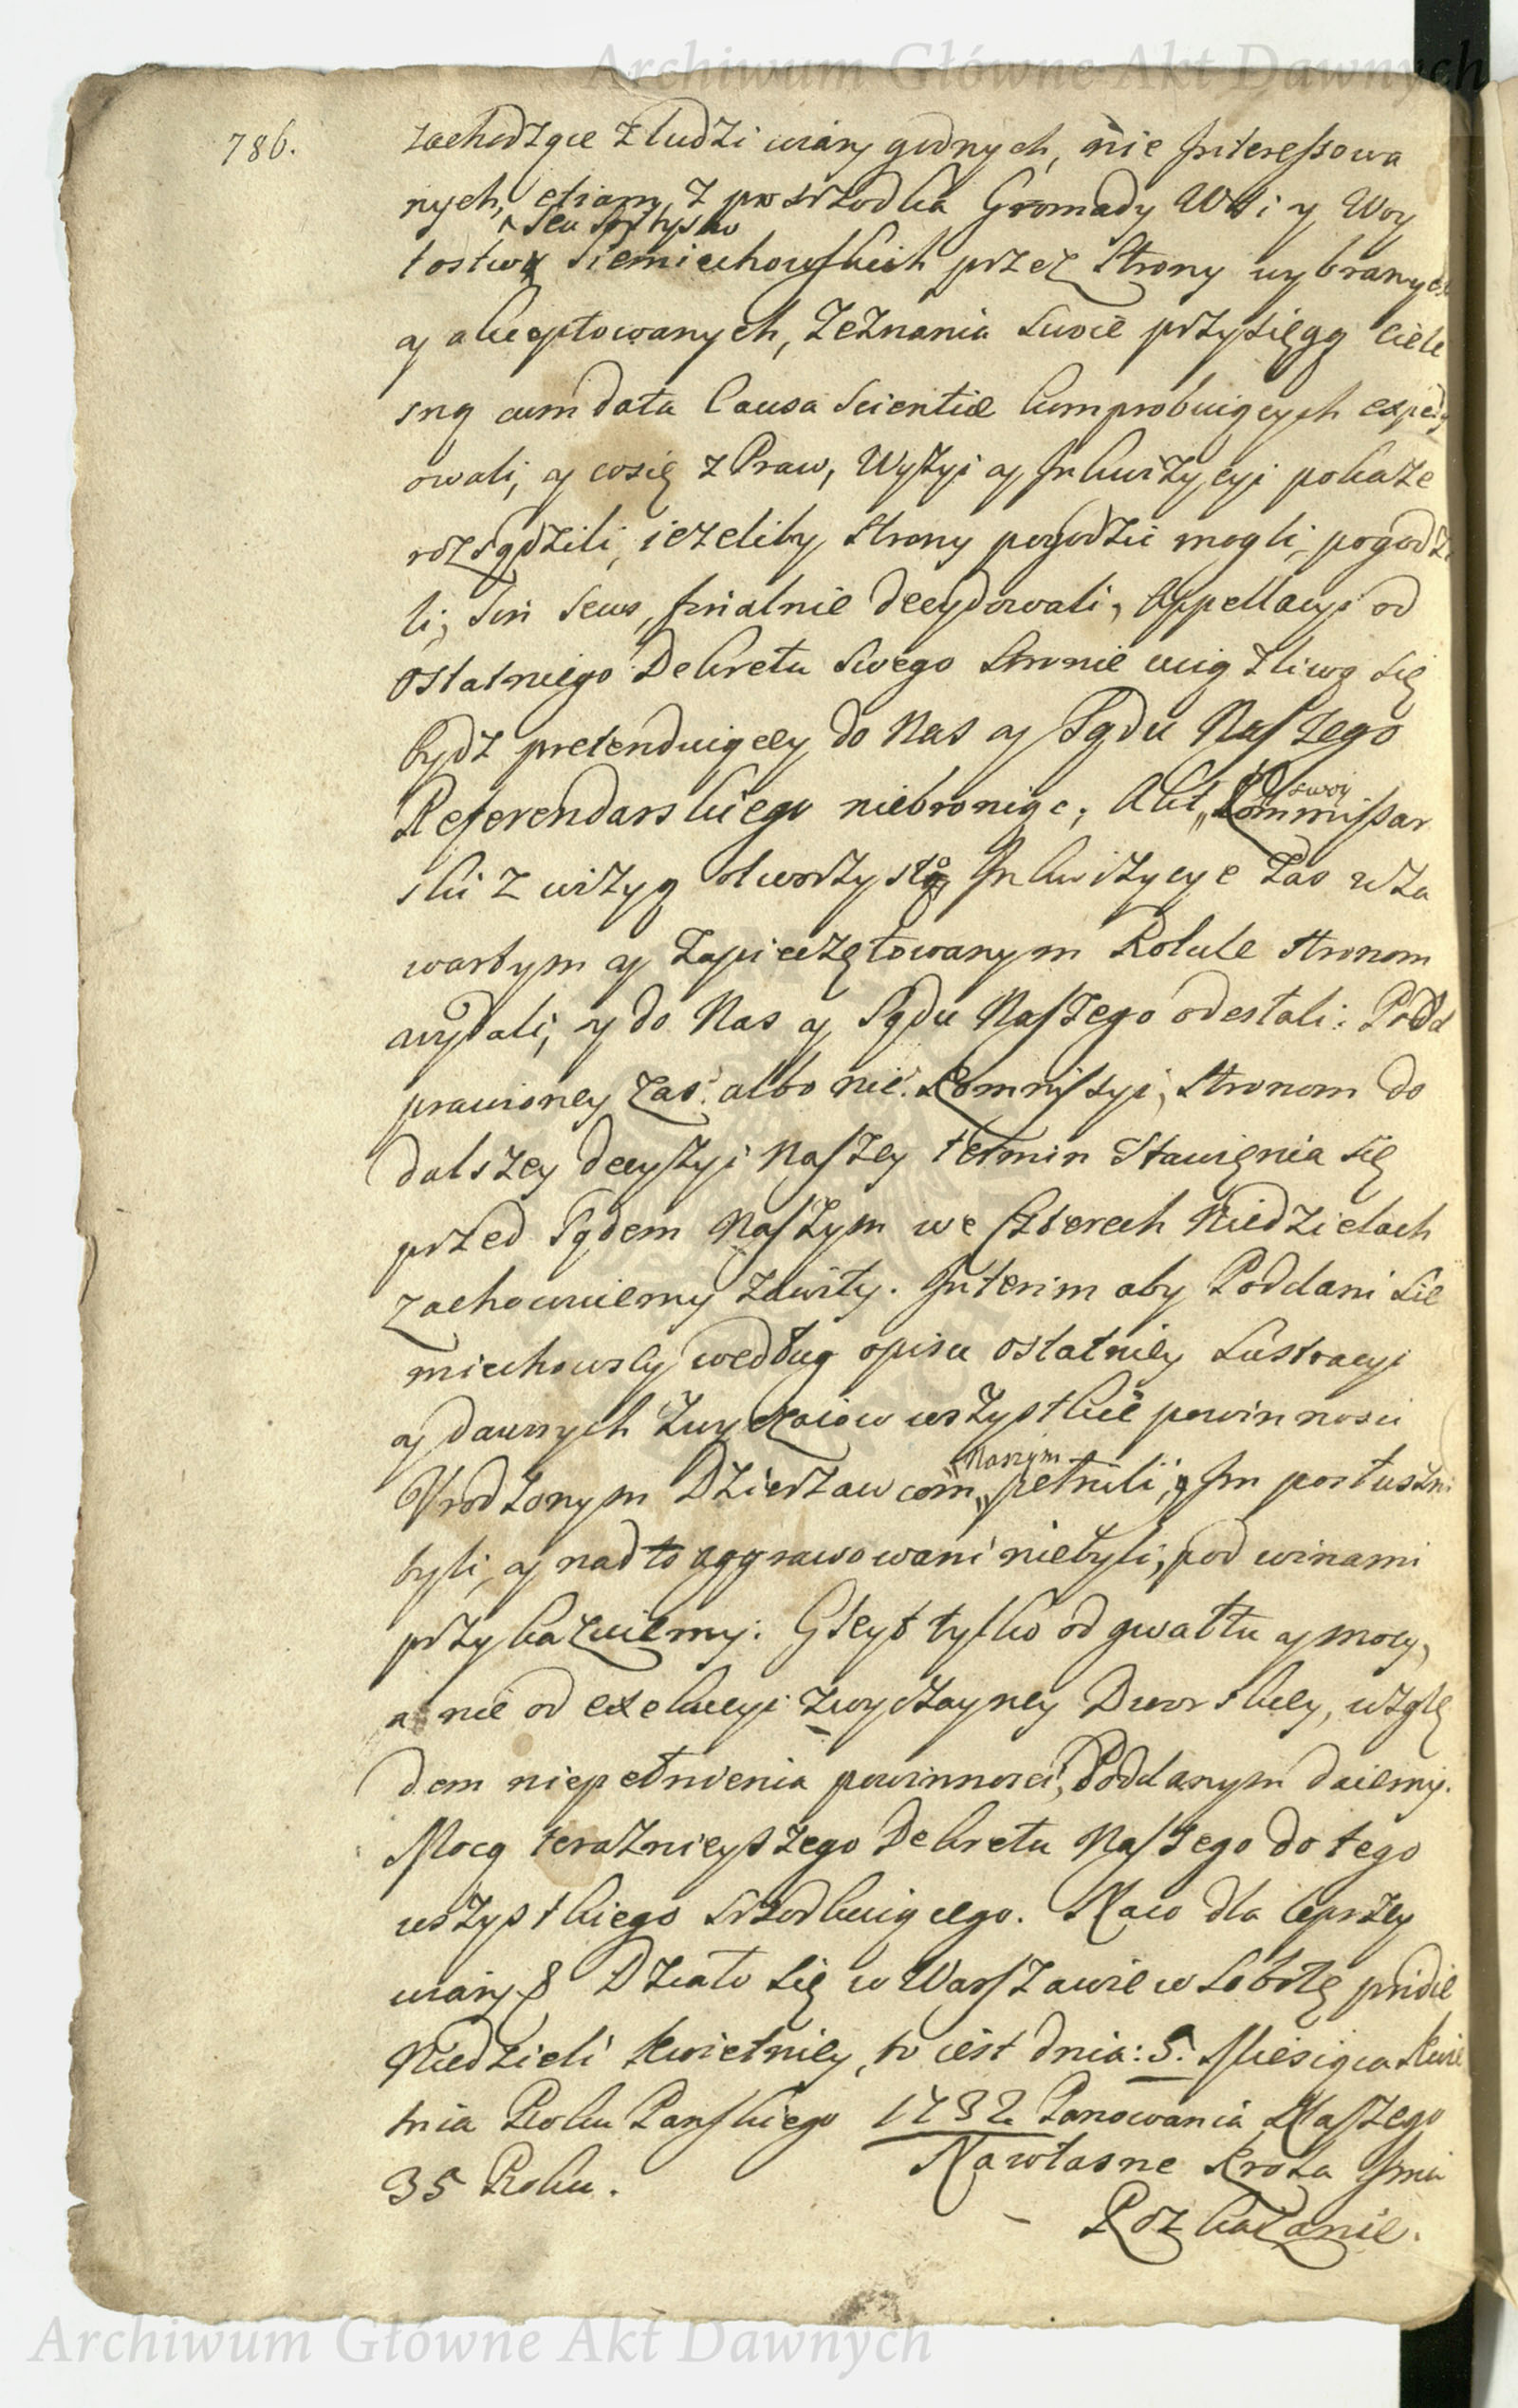 Archiwum Główne Akt Dawnych
786.
zachodzące z ludzi wiary godnych, nie Interessowa
nych, etiam z posrzodka Gromady Wsi y Woy
^ seu Soltystwo
tostwa Siemiechowskich przez Strony wybranych
y akceptowanych, Zeznania swoie przysięgą ciele
sną cum data Causa Scientiæ komprobuiących exped
owali, y cosię z Praw, Wyzyi y Inkwizycyi pokaze
rozsądzili, iezeliby Strony pogodzic mogli, pogodzi
li, Sin Secus, finalnie decydowali, Appellacyi od
Ostatniego Dekretu swego Stronie uciązliwą się
bydz pretenduiącey do Nas y Sądu Naszego
Referendarskiego niebroniąc; Akt „Kommissar
swoy
ski z wizyą otworzysto Inkwizycye zas w za
wartym y zapieczętowanym Rotule stronom
wydali, y do Nas y Sądu Naszego odesłali: Podd
prawioney zas: albo nie: Kommissyi, stronom do
dalszey decyzyi Naszey termin Stawienia się
przed Sądem Naszym we czterech Niedzielach
zachowuiemy zawity. Interim aby Poddani Sie
miechowscy według opisu ostatniey Lustracyi
y dawnych zwyczaiow wszystkie powinnosci
„Naszym
Vrodzonym Dzierzawcom„ pełnili, y Im posłuszni
byli, y nad to aggrawowani niebyli, pod winami
przykazuiemy: Gleyt tylko od gwałtu y mocy,
a nie od exekucyi zwyczayney Dworskiey, wzglę
dem niepełnienia powinnosci, Poddanym daiemy.
Mocą teraznieyszego Dekretu Naszego do tego
wszystkiego srzodkuiącego. Naco dla lepszey
wiary & Działo się w Warszawie w Sobotę pridie
Niedzieli Kwietniey, to iest dnia: 5. Miesiąca Kwie
tnia Roku Panskiego 1732. Panowania Naszego
35 Roku.
Na własne Krola Jmci
Rozkazanie.
Archiwum Główne Akt Dawnych